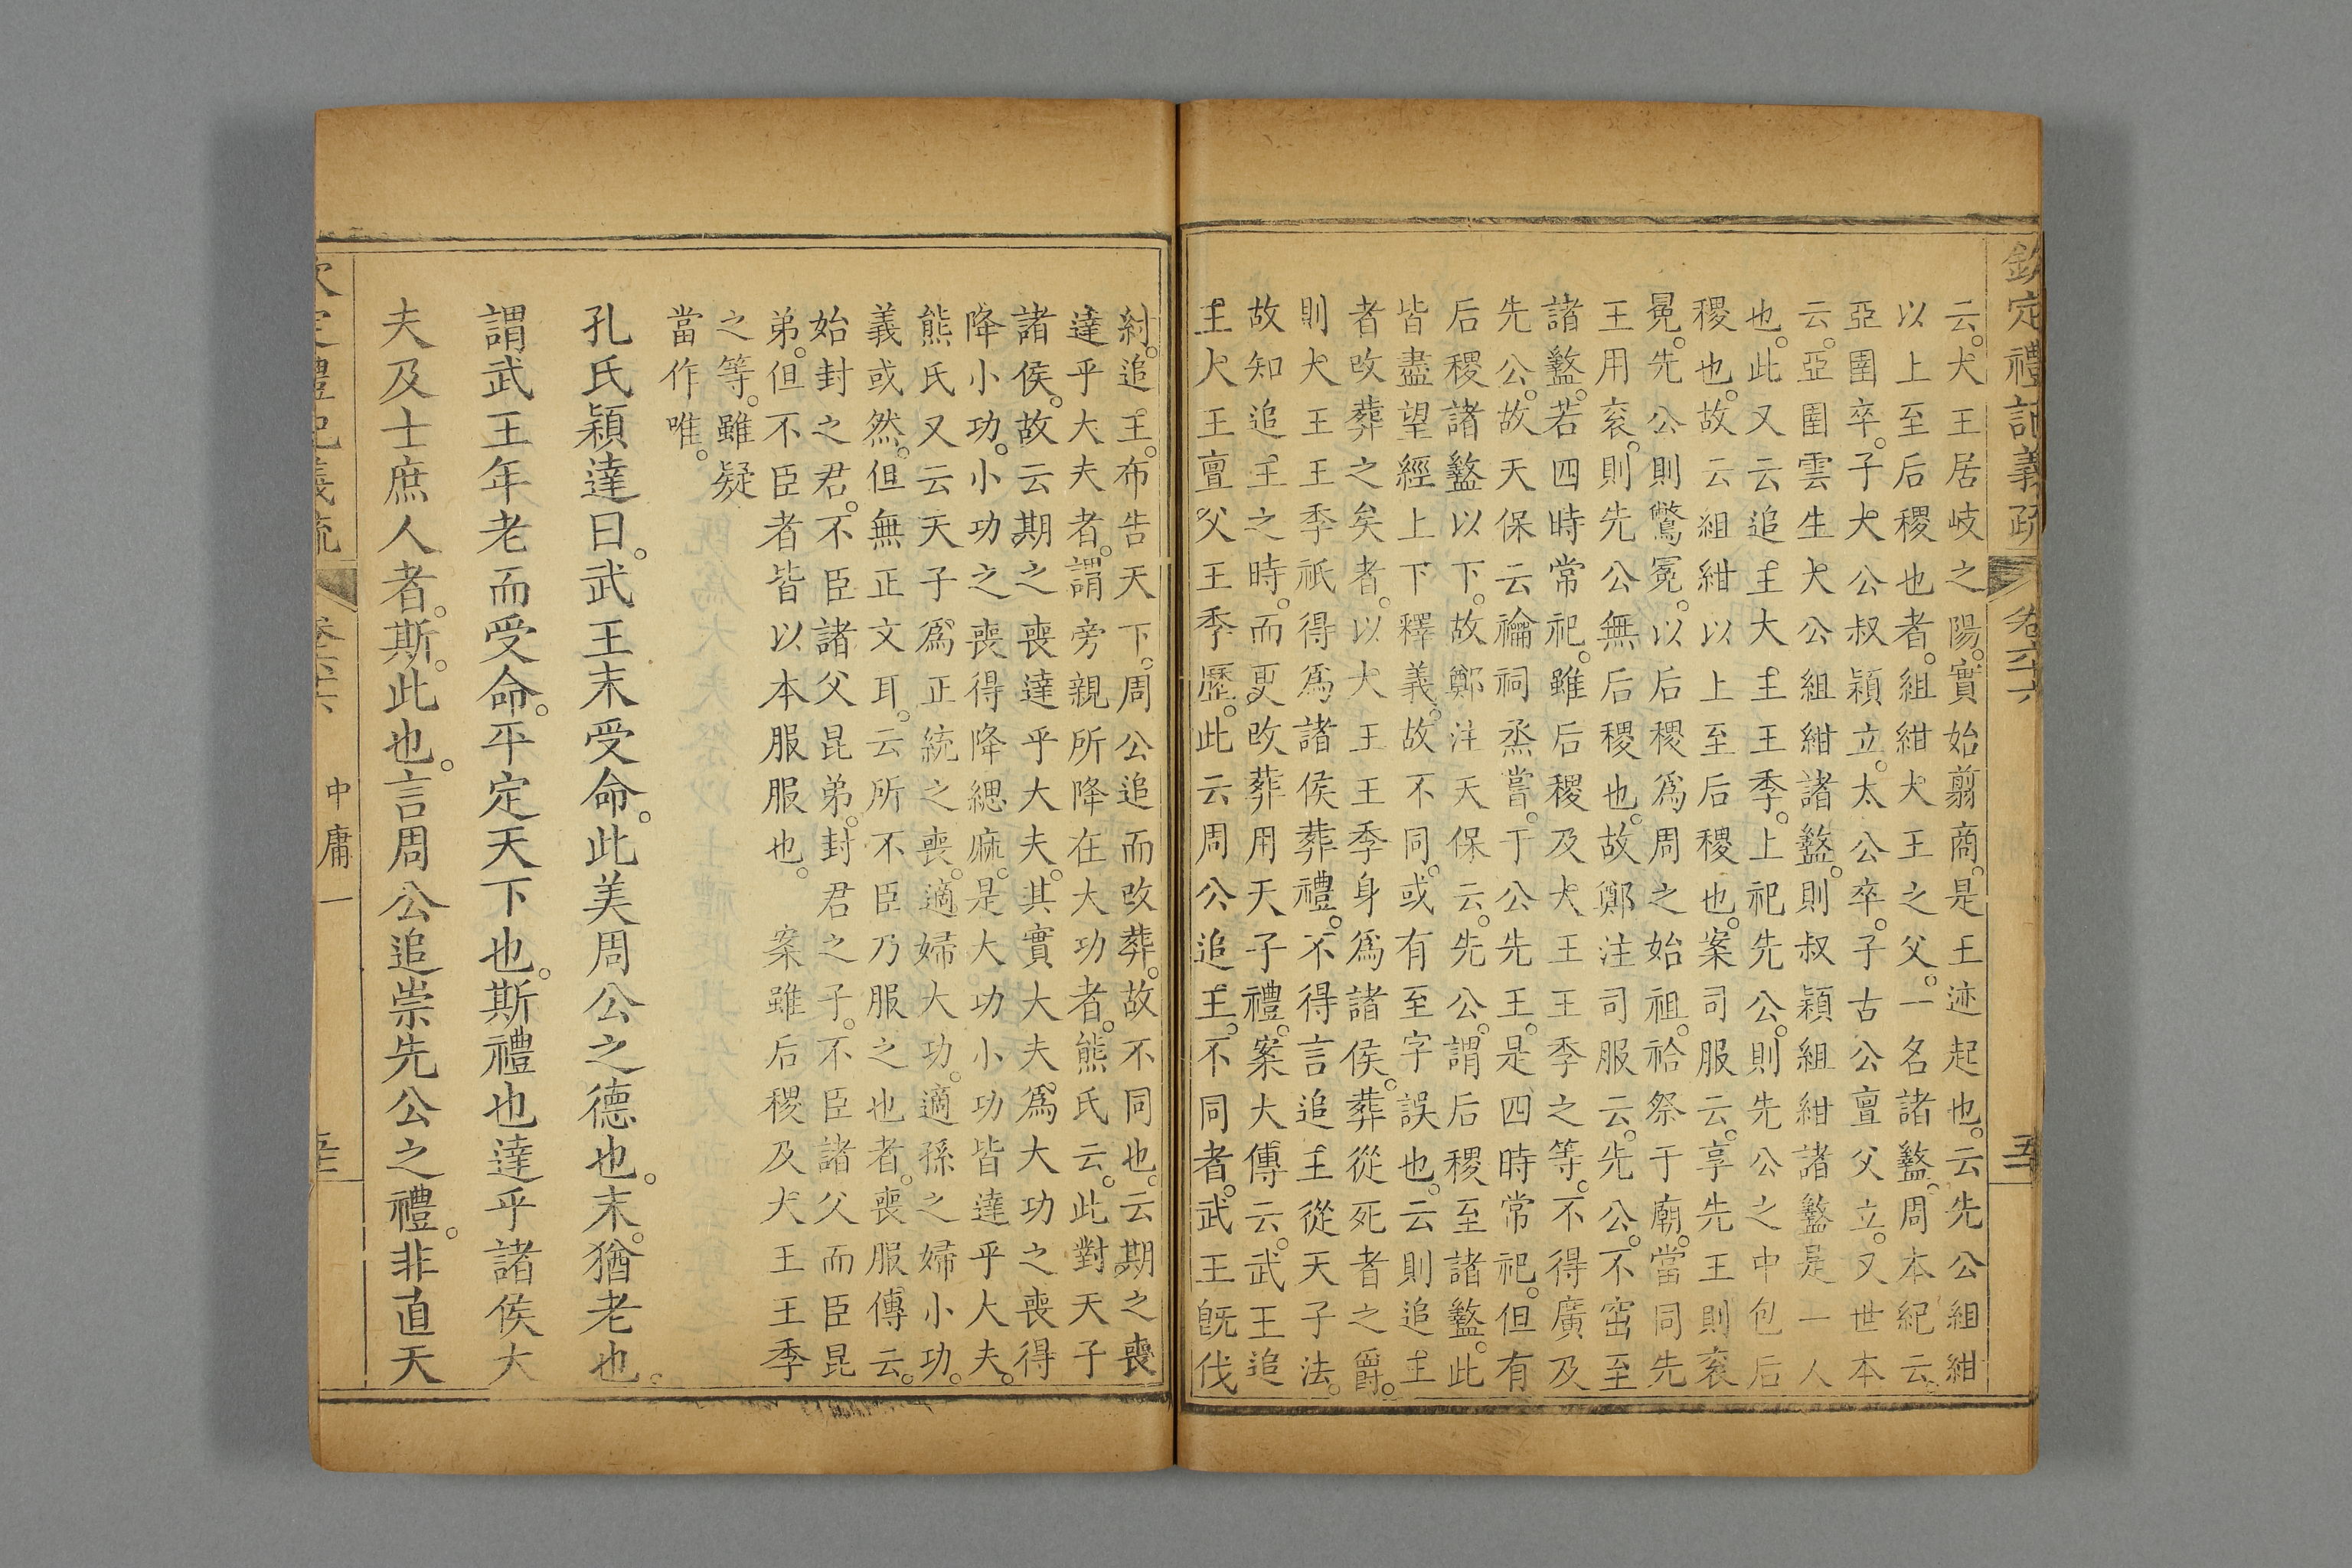 欽定禮記義疏 卷六十六 五十一
云。大王居岐之陽。實始翦商。是王迹起也。云先公組紺
以上至后稷也者。組紺大王之父。一名諸盩。周本紀云。
亞圉卒。子大公叔穎立。太公卒。子古公亶父立。又世本
云。亞圉雲生大公組紺諸盩。則叔穎組紺諸盩是一人
也。此又云追王大王王季。上祀先公。則先公之中包后
稷也。故云組紺以上至后稷也。案司服云。享先王則衮
冕。先公則鷩冕。以后稷爲周之始祖。祫祭于廟。當同先
王用衮。則先公無后稷也。故鄭注司服云。先公。不窋至
諸盩。若四時常祀。雖后稷及大王王季之等。不得廣及
先公。故天保云禴祠烝嘗。于公先王。是四時常祀。但有
后稷諸盩以下。故鄭注天保云。先公。謂后稷至諸盩。此
皆盡望經上下釋義。故不同。或有至字誤也。云則追王
者改葬之矣者。以大王王季身爲諸侯。葬從死者之爵。
則大王王季祇得爲諸侯葬禮。不得言追王從天子法。
故知追王之時。而更改葬用天子禮。案大傳云。武王追
王大王亶父王季歷。此云周公追王。不同者。武王既伐
紂。追王。布告天下。周公追而改葬。故不同也。云期之喪
達乎大夫者。謂旁親所降在大功者。熊氏云。此對天子
諸侯。故云期之喪達乎大夫。其實大夫爲大功之喪得
降小功。小功之喪得降緦麻。是大功小功皆達乎大夫。
熊氏又云天子爲正統之喪。適婦大功。適孫之婦小功。
義或然。但無正文耳。云所不臣乃服之也者。喪服傳云。
始封之君。不臣諸父昆弟。封君之子。不臣諸父而臣昆
弟。但不臣者皆以本服服也。 案雖后稷及大王王季
之等。雖疑
當作唯。
孔氏穎達曰。武王末受命。此美周公之德也。末。猶老也。
謂武王年老而受命。平定天下也。斯禮也達乎諸侯大
夫及士庶人者。斯。此也。言周公追崇先公之禮。非直天
中庸一